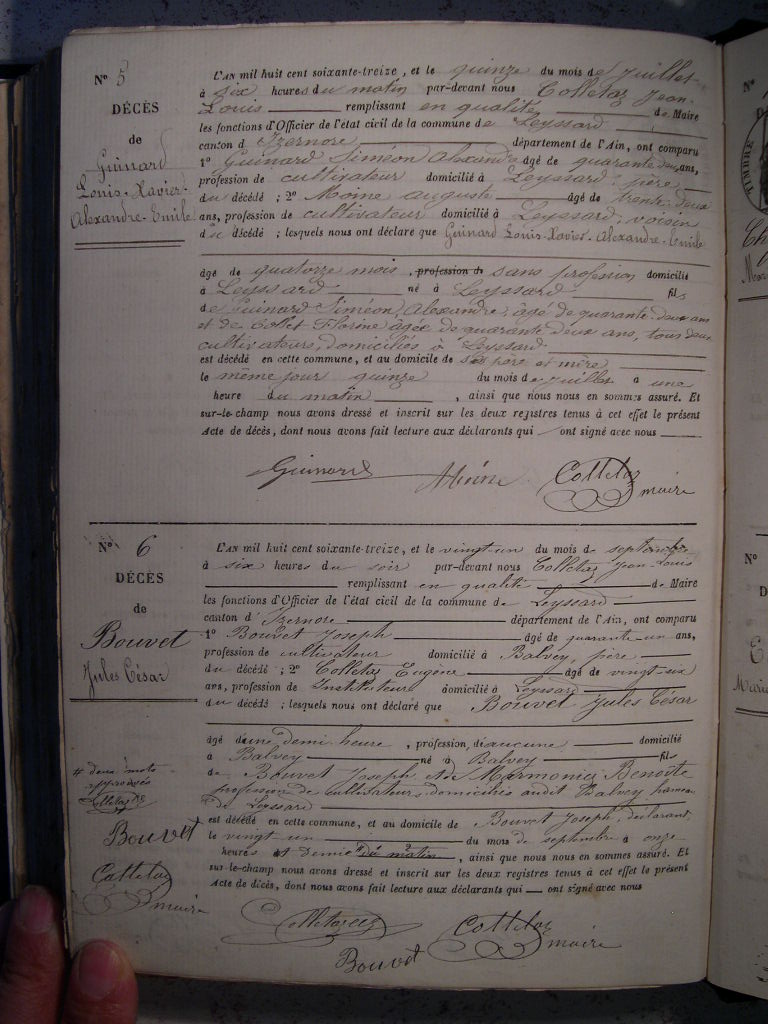 N° 5
DÉCÈS
de
Guinard
Louis-Xavier-
Alexandre-Emile
L'AN mil huit cent soixante-treize, et le quinze du mois de Juillet
à six heures du matin par-devant nous Colletaz Jean-
Louis remplissant en qualité de Maire
les fonctions d'Officier de l'état civil de la commune de Leyssard
canton d'Izernore département de l'Ain, ont comparu
1° Guinard Siméon Alexandre âgé de quarante deux ans,
profession de cultivateur domicilié à Leyssard, père
du décédé ; 2° Moine auguste âgé de trente deux
ans, profession de cultivateur domicilié à Leyssard, voisin
du décédé ; lesquels nous ont déclaré que Guinard Louis-Xavier-Alexandre-Emile
âgé de quatorze mois, profession de sans profession domicilié
à Leyssard né à Leyssard fils
de Guinard Siméon, Alexandre, âgé de quarante-deux ans
et de Colet Florine âgée de quarante deux ans, tous deux
cultivateurs, domiciliés à Leyssard
est décédé en cette commune, et au domicile de ses père et mère
le même jour quinze du mois de juillet à une
heure du matin, ainsi que nous nous en sommes assuré. Et
sur-le-champ nous avons dressé et inscrit sur les deux registres tenus à cet effet le présent
Acte de décès, dont nous avons fait lecture aux déclarants qui ont signé avec nous
Guinard Moine Colletaz
maire
N° 6
DÉCÈS
de
Bouvet
Jules César
L'AN mil huit cent soixante-treize, et le vingt-un du mois de septembre
à six heures du soir par-devant nous Colletaz Jean-Louis
remplissant en qualité de Maire
les fonctions d'Officier de l'état civil de la commune de Leyssard
canton d'Izernore département de l'Ain, ont comparu
1° Bouvet Joseph âgé de quarante-un ans,
profession de cultivateur domicilié à Balvey, père
du décédé ; 2° Colletaz Eugène âgé de vingt-six
ans, profession de Instituteur domicilié à Leyssard
du décédé ; lesquels nous ont déclaré que Bouvet Jules César
âgé d'une demi heure, profession d'aucune domicilié
à Balvey né à Balvey fils
de Bouvet Joseph et de Marmonier Benoite
profession de cultivateurs, domiciliés audit Balvey hameau
de Leyssard
est décédé en cette commune, et au domicile de Bouvet Joseph, déclarant,
le vingt un du mois de septembre à onze
heures et demie # du matin, ainsi que nous nous en sommes assuré. Et
sur-le-champ nous avons dressé et inscrit sur les deux registres tenus à cet effet le présent
Acte de décès, dont nous avons fait lecture aux déclarants qui ont signé avec nous
# deux mots
approuvés
Bouvet
Colletaz
maire
Colletaz Eug Colletaz
maire
Bouvet
N°
TIMBRE
N°